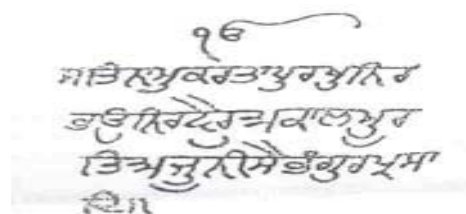 ੴ
ਸਤਿਨਾਮੁਕਰਤਾਪੁਰਖੁਨਿਰ
ਭਉਨਿਰਵੈਰੁਅਕਾਲਮੂਰ
ਤਿਅਜੂਨੀਸੈਭੰਗੁਰਪ੍ਰਸਾ
ਦਿ॥